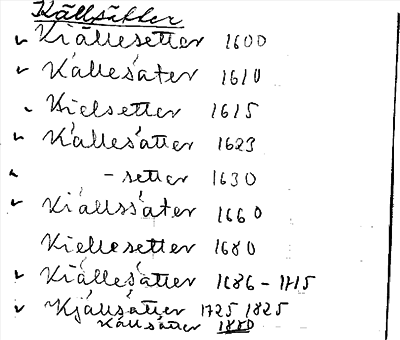 Källsätter
✓ Kiällesetter 1600
✓ Källesäter 1610
✓ Kielsetter 1615
✓ Källesätter 1623
✓ - setter 1630
✓ Kiällssäter 1660
Kiellesetter 1680
✓ Kiällesätter 1686 - 1715
✓ Kjällsätter 1725 1825
Källsätter 1880